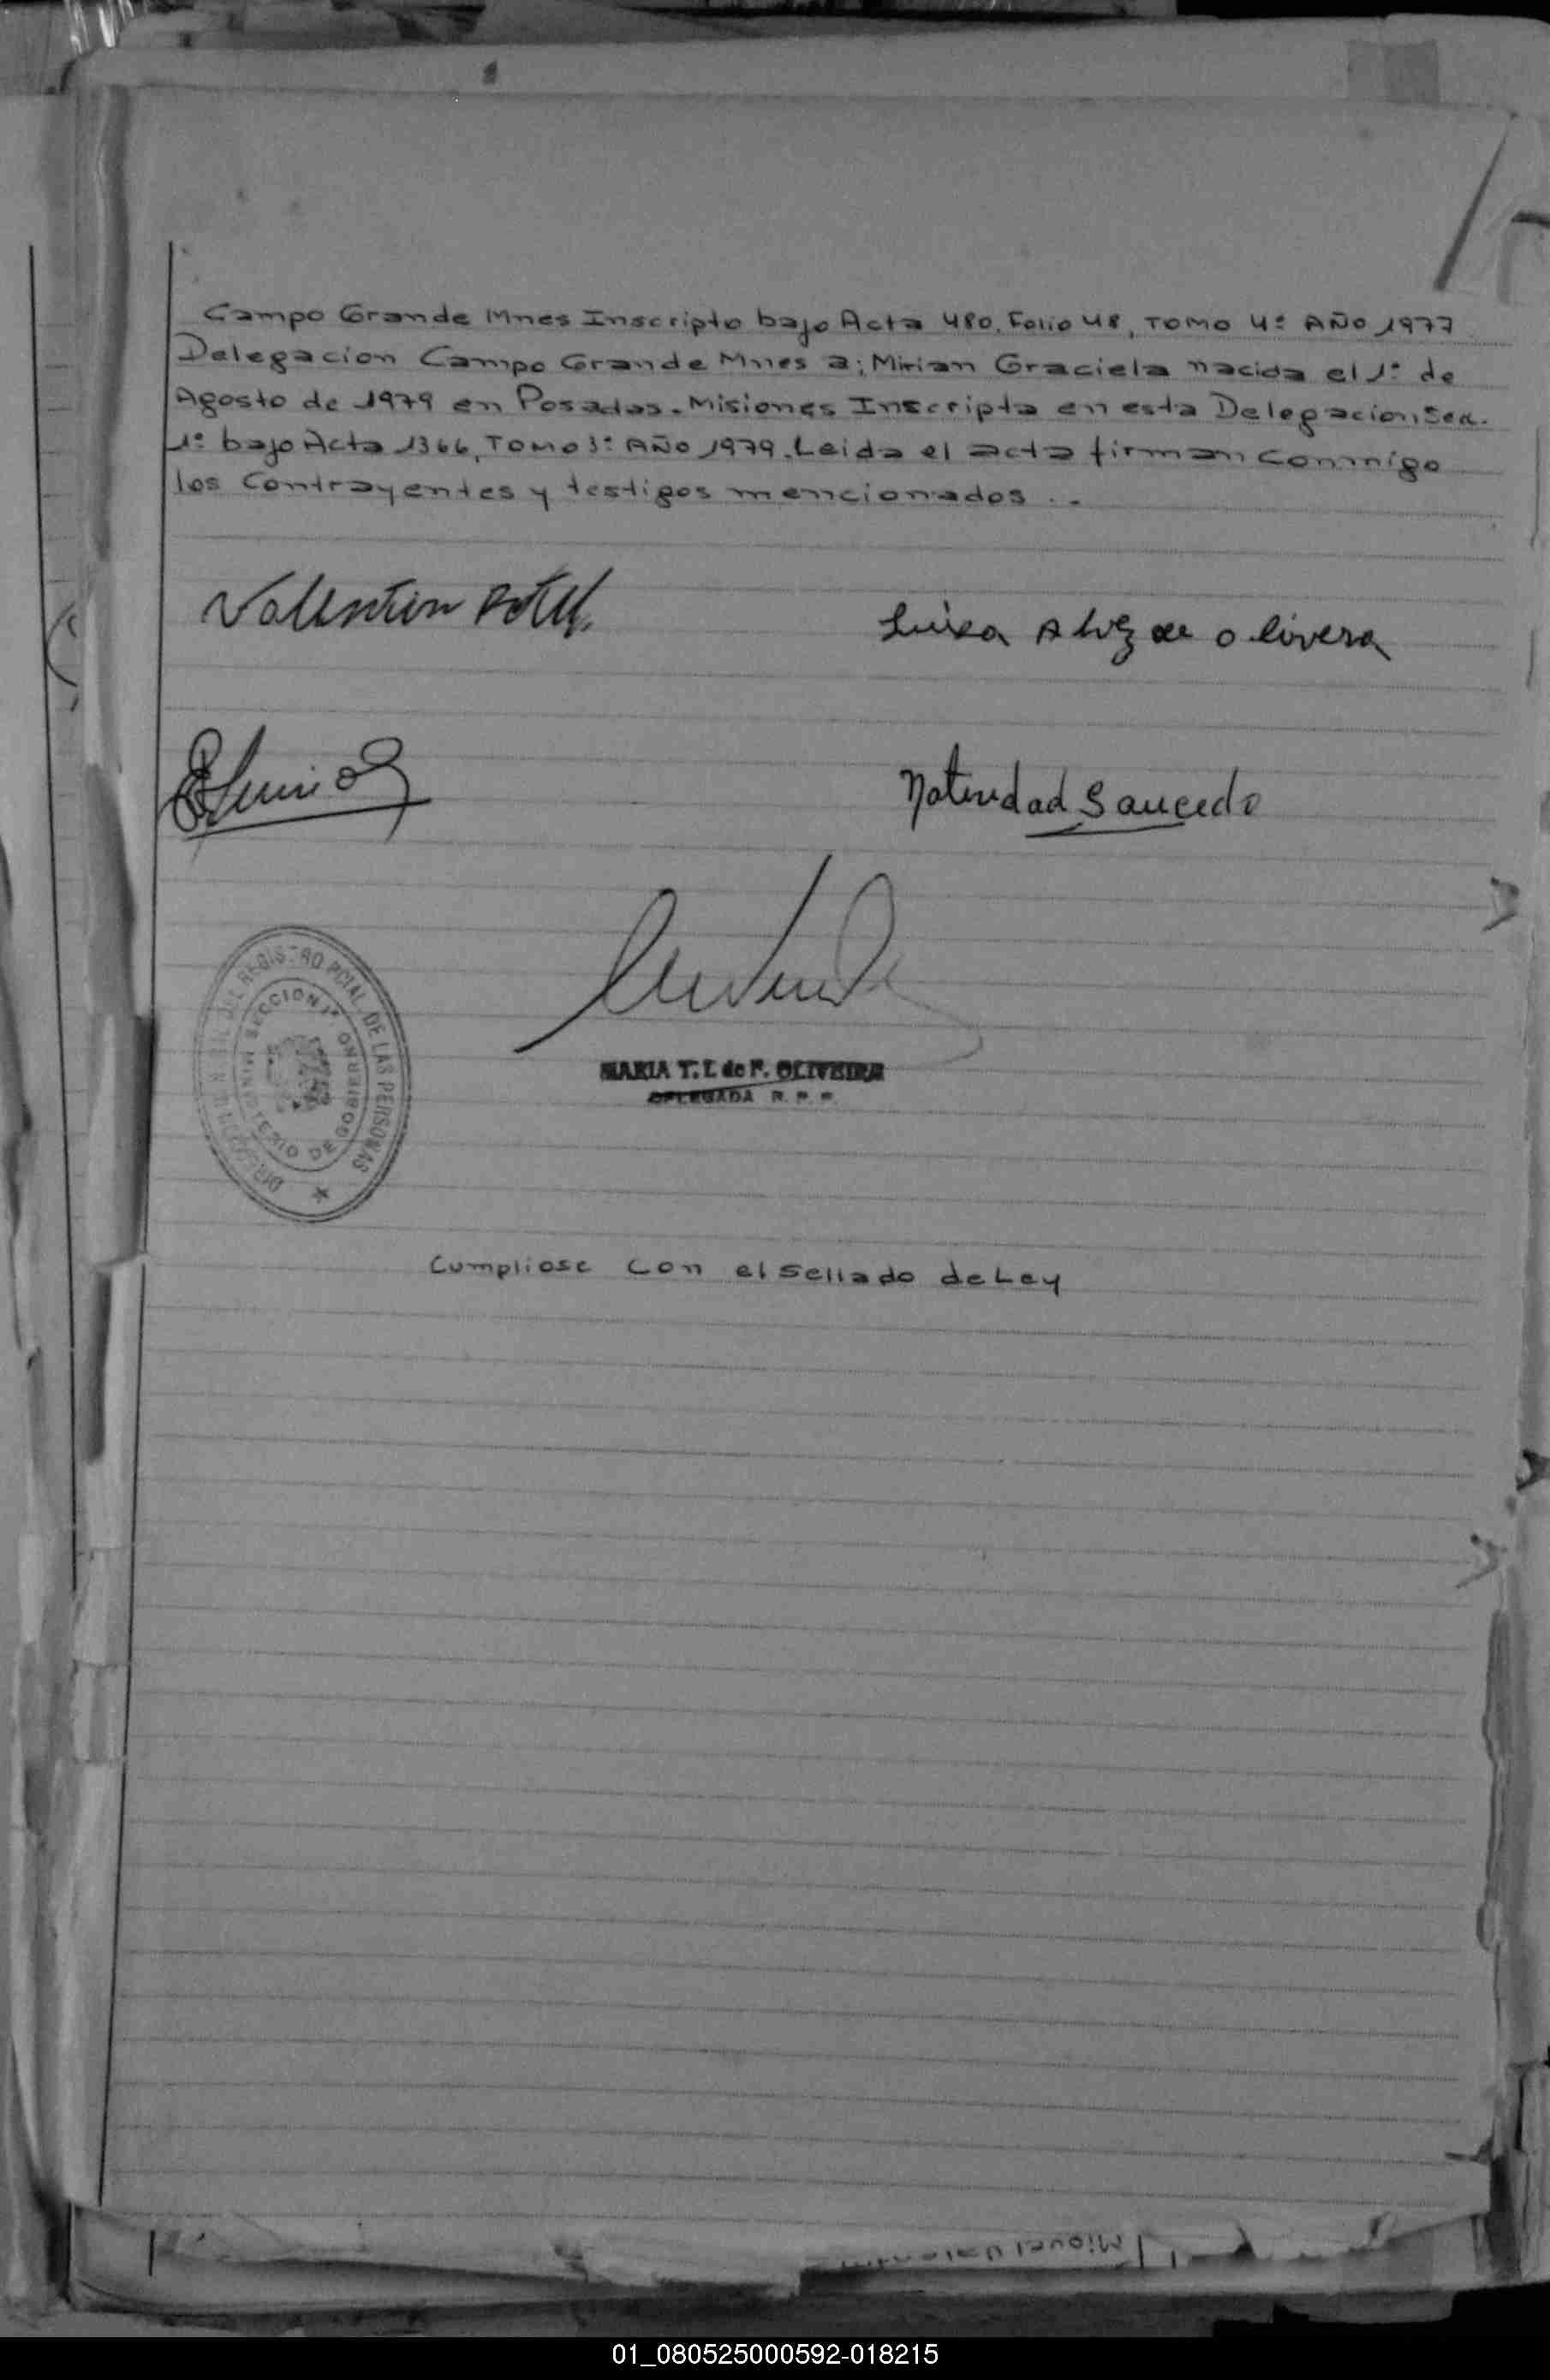 Campo Grande Mnes Inscripto bajo Acta 480. Folio 48, TOMO 4º AÑO 1977
Delegacion Campo Grande Mnes a; Mirian Graciela nacida el 1º de
Agosto de 1979 en Posadas. Misiones Inscripta en esta Delegacion Secc.
1º bajo Acta 1366, TOMO 3º AÑO 1979. Leida el acta firman conmigo
los Contrayentes y testigos mencionados . . -
Valentin
Luisa Alvez de Olivera
Natividad Saucedo
DEL REGISTRO PCIAL. DE LAS PERSONAS
SECCION 1ª
MINISTERIO DE GOBIERNO
MARIA T. I. de F. OLIVEIRA
DELEGADA R. P. P.
Cumpliose con el sellado de Ley
Miguel
01_080525000592-018215